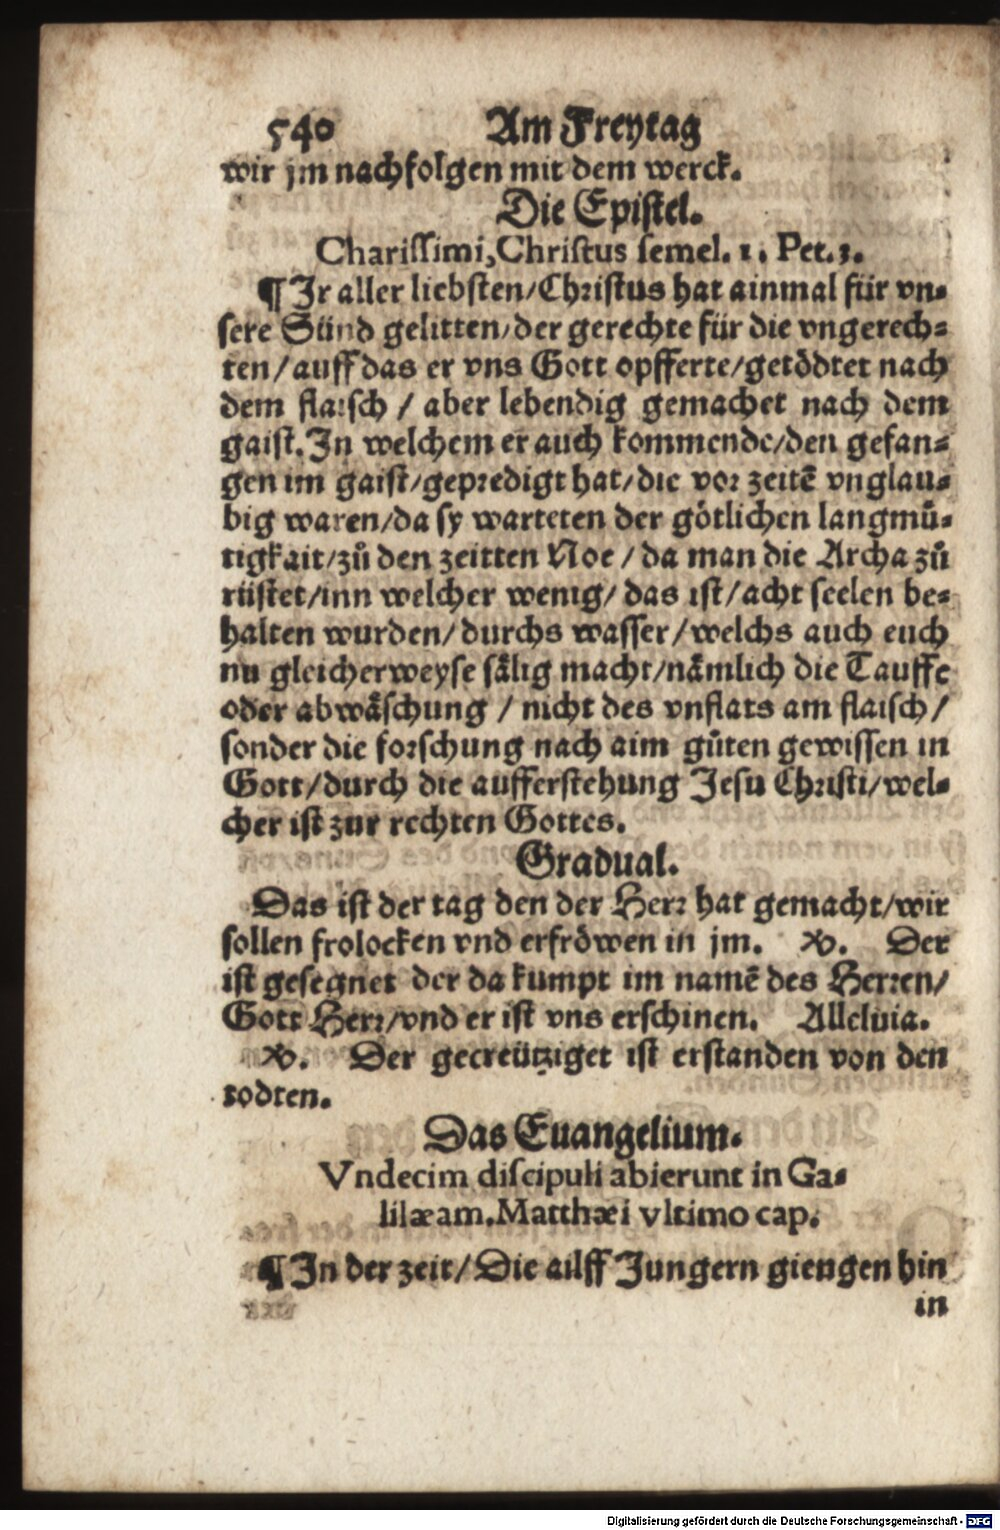 540 Am Freytag
wir jm nachfolgen mit dem werck.
Die Epistel.
Charissimi, Christus semel. 1. Pet. 3.
¶ Ir aller liebsten/Christus hat ainmal für vn-
sere Sünd gelitten/der gerechte für die vngerech-
ten/auff das er vns Gott opfferte/getödtet nach
dem flaisch / aber lebendig gemachet nach dem
gaist. In welchem er auch kommende/den gefan-
gen im gaist/geprediget hat/die vor zeitē vnglau-
big waren/da sy warteten der götlichen langmuͤ-
tigkait/zuͦ den zeitten Noe / da man die Archa zuͦ
rüstet/inn welcher wenig/ das ist/acht seelen be-
halten wurden/durchs wasser/welchs auch euch
nu gleicherweyse sälig macht/nämlich die Tauffe
oder abwäschung / nicht des vnflats am flaisch/
sonder die forschung nach aim guͦten gewissen in
Gott/durch die aufferstehung Jesu Christi/wel-
cher ist zur rechten Gottes.
Gradual.
Das ist der tag den der Herr hat gemacht/wir
sollen frolocken vnd erfröwen in jm. ℣. Der
ist gesegnet der da kumpt im namē des Herren/
Gott Herr/vnd er ist vns erschinen. Alleluia.
℣. Der gecreütziget ist erstanden von den
todten.
Das Euangelium.
Vndecim discipuli abierunt in Ga-
lilæam. Matthæi vltimo cap.
¶ In der zeit/Die ailff Jungern giengen hin
in
Digitalisierung gefördert durch die Deutsche Forschungsgemeinschaft - DFG